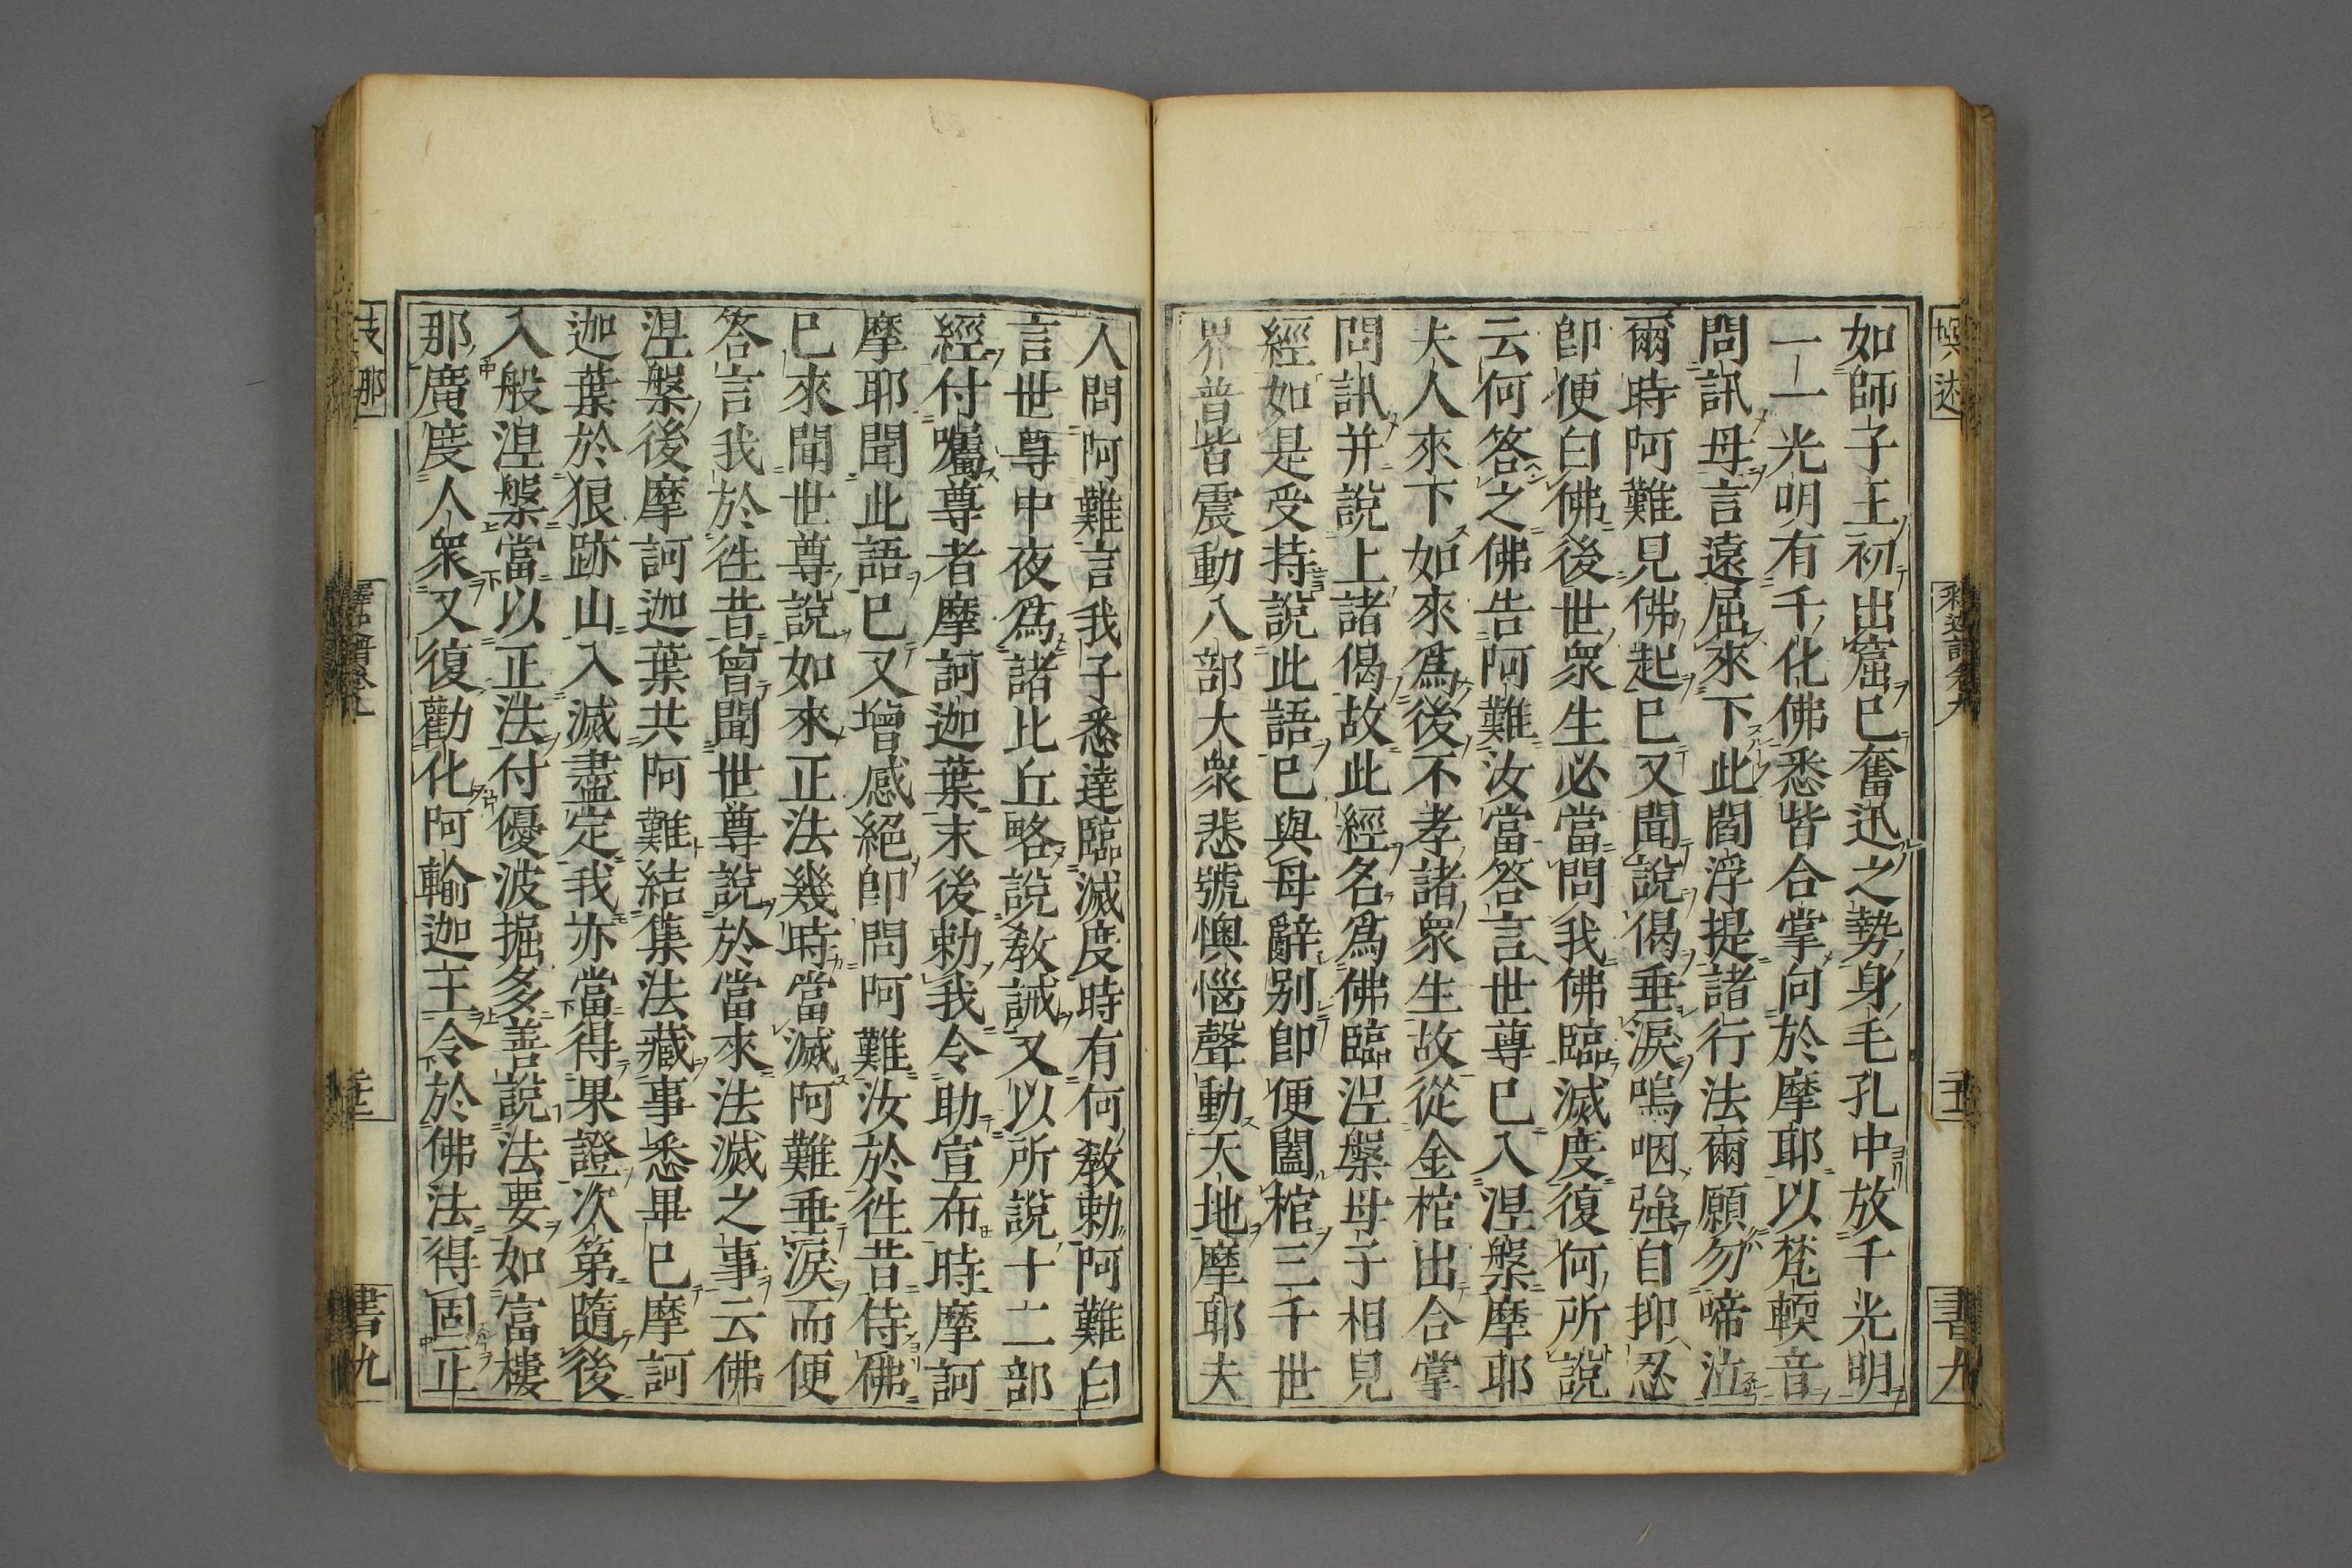 如師子王初出窟已奮迅之勢身毛孔中放千光明
一一光明有千化佛悉皆合掌向於摩耶以梵輭音
問訊母言遠屈來下此閻浮提諸行法爾願勿啼泣
爾時阿難見佛起已又聞說偈垂淚嗚咽強自抑忍
卽便白佛後世衆生必當問我佛臨滅度復何所說
云何答之佛告阿難汝當答言世尊已入涅槃摩耶
夫人來下如來爲後不孝諸衆生故從金棺出合掌
問訊并說上諸偈故此經名爲佛臨涅槃母子相見
經如是受持說此語已與母辭別卽便闔棺三千世
界普皆震動八部大衆悲號懊惱聲動天地摩耶夫
人問阿難言我子悉達臨滅度時有何敎勅阿難白
言世尊中夜爲諸比丘略說敎誡又以所說十二部
經付囑尊者摩訶迦葉末後勅我令助宣布時摩訶
摩耶聞此語已又增感絕卽問阿難汝於徃昔侍佛
已來聞世尊說如來正法幾時當滅阿難垂淚而便
答言我於徃昔曾聞世尊說於當來法滅之事云佛
涅槃後摩訶迦葉共阿難結集法藏事悉畢已摩訶
迦葉於狼跡山入滅盡定我亦當得果證次第隨後
入般涅槃當以正法付優波掘多善說法要如富樓
那廣度人衆又復勸化阿輸迦王令於佛法得固正
書九